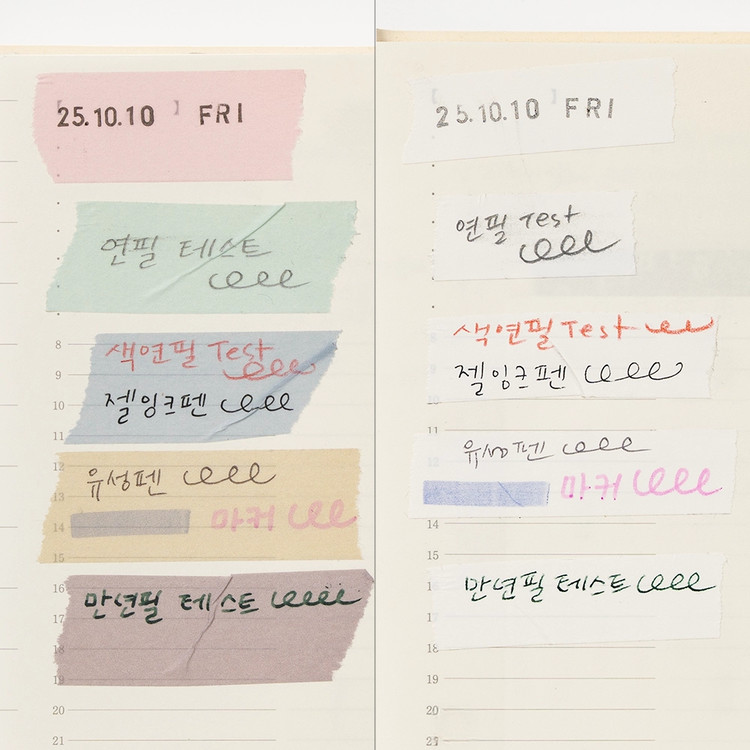 25.10.10 FRI
연필 테스트
색연필 Test
젤잉크펜
유성펜
마커
만년필 테스트
8
9
10
11
12
13
14
15
16
17
18
19
20
21
25.10.10 FRI
연필 Test
색연필 Test
젤잉크펜
유성펜
마커
만년필 테스트
9
10
11
12
14
15
16
17
18
19
20
21